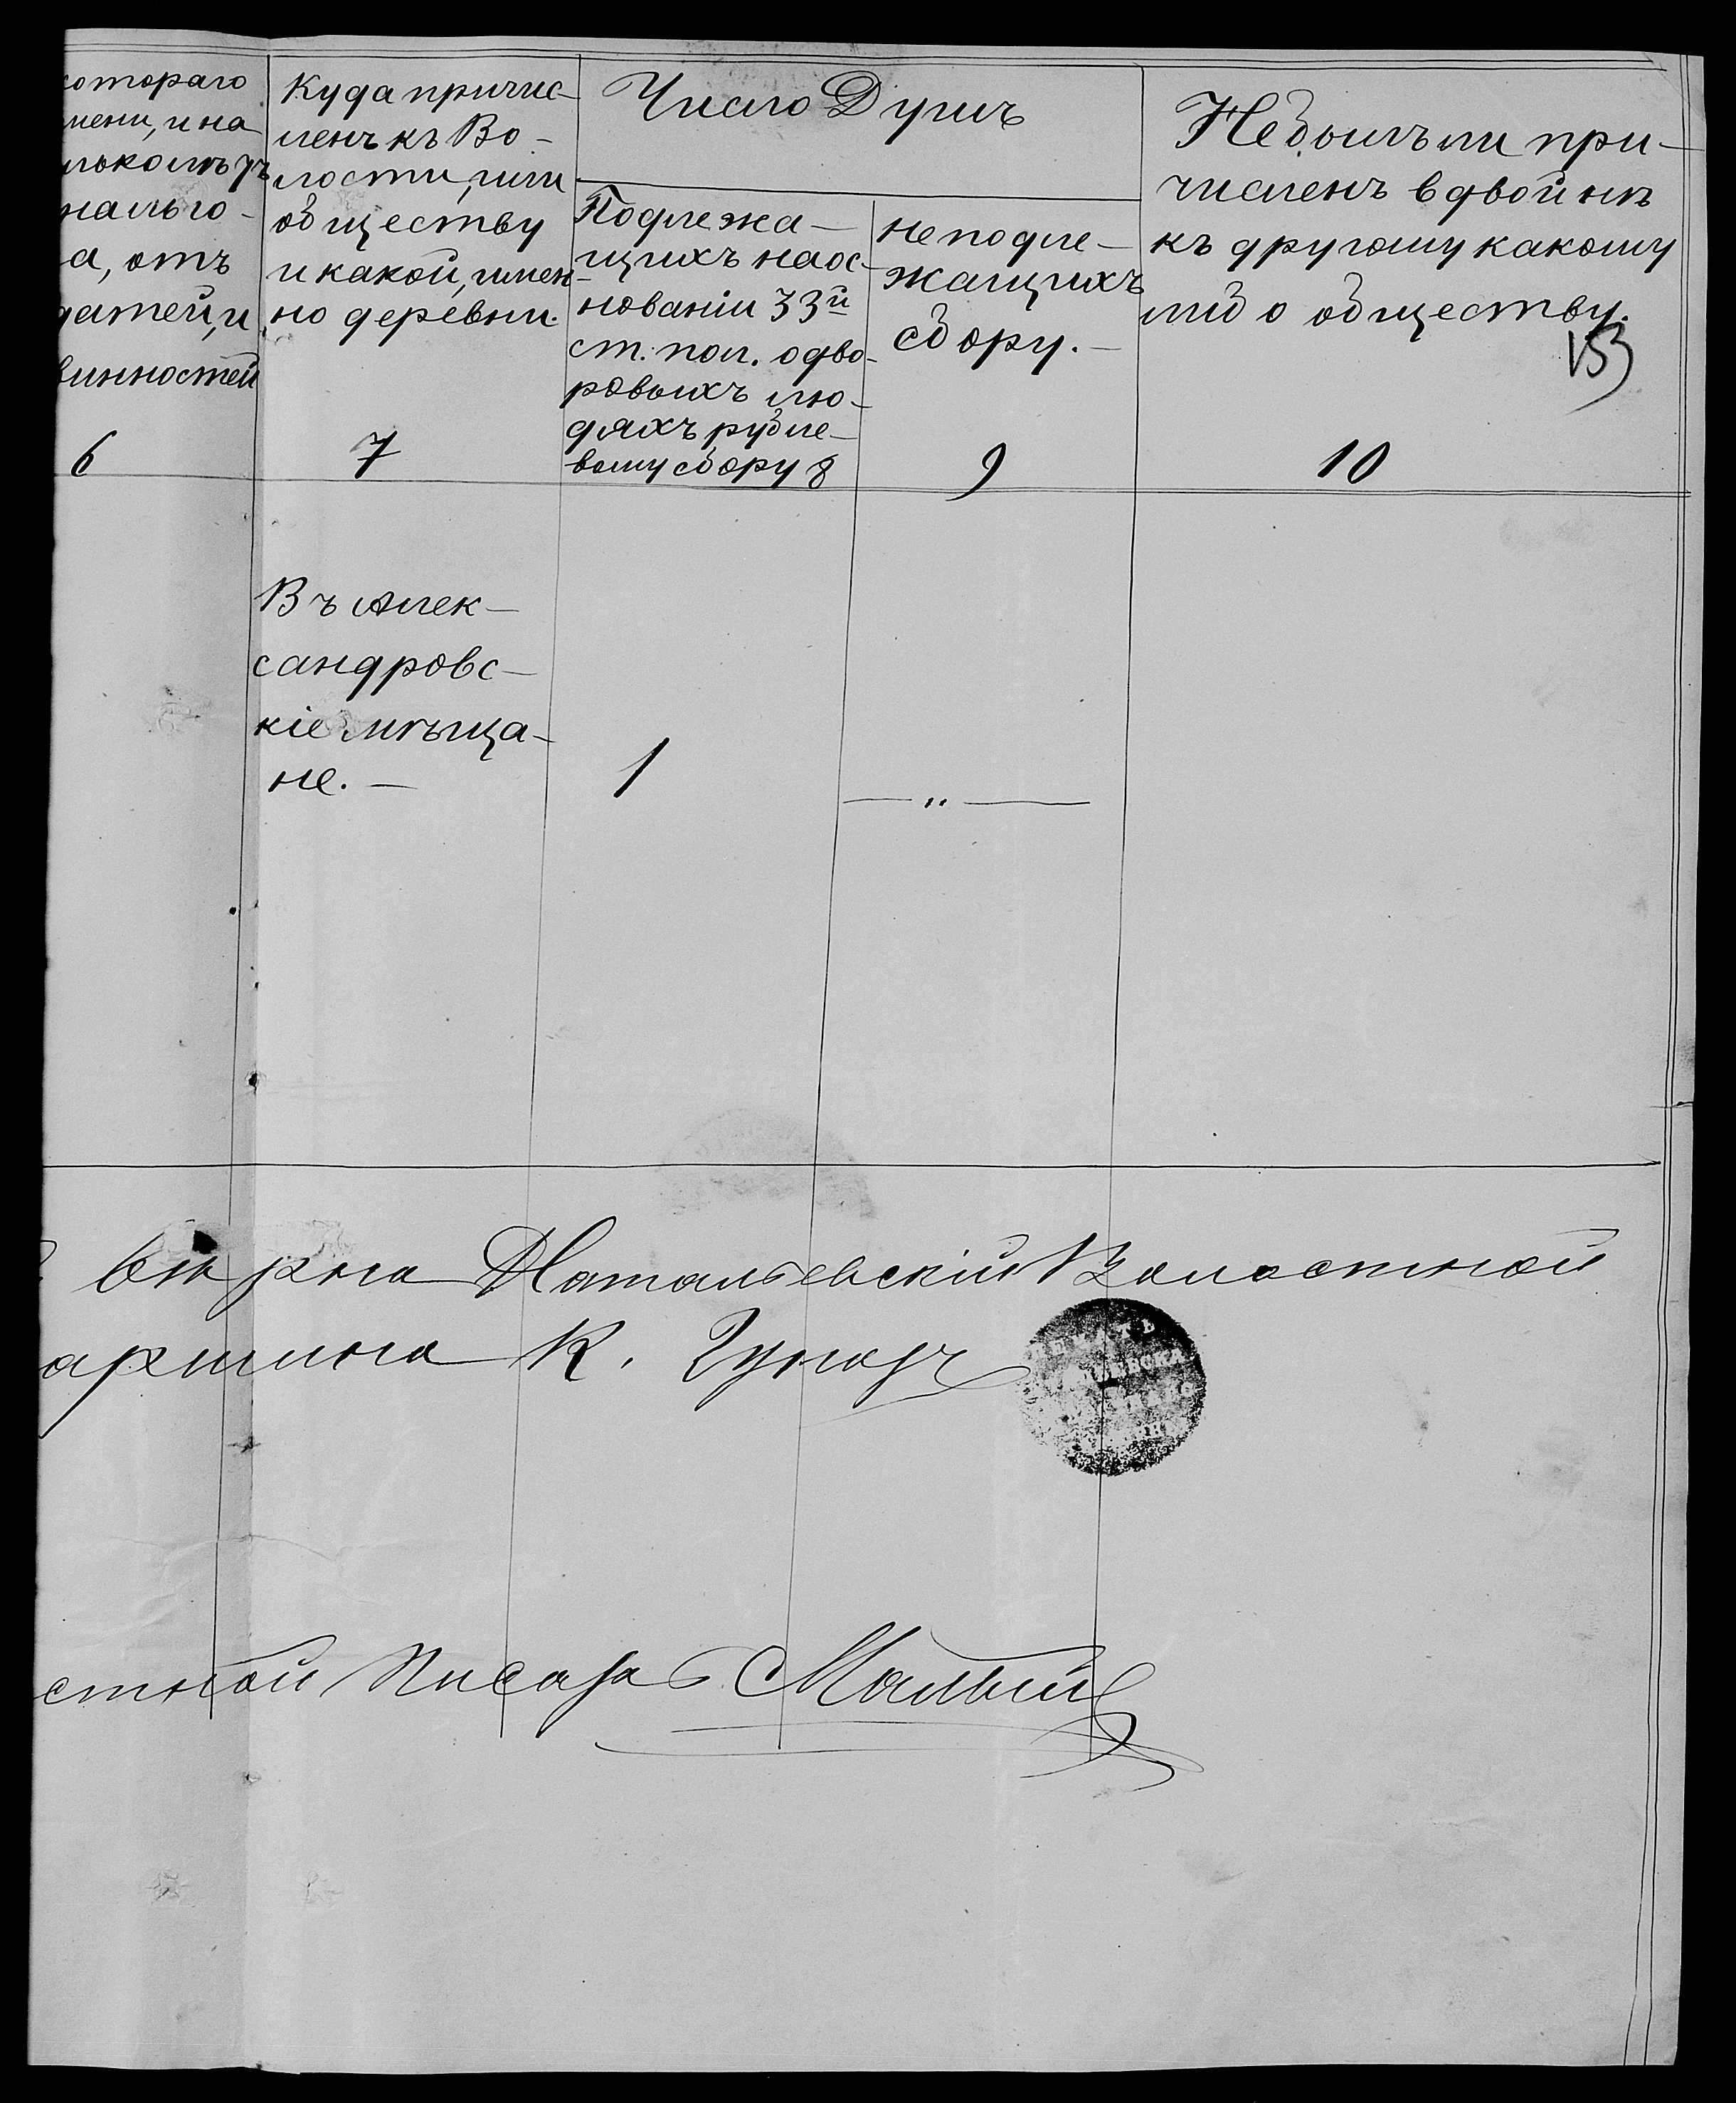 котораго
мени, и на
лькомъ уч
нально-
а, отъ
датей, и
винностей
6
Куда причис-
ленъ къ Во-
лости, или
обществу
и какой, имен-
но деревни.
7
Число Душъ
Подлежа-
щихъ наос-
нованіи 33й
ст. пол. о дво-
ровыхъ лю-
дяхъ рубле-
вому сбору 8
не подле-
жащихъ
сбору.-
9
Не былъ ли при-
численъ вдвойнѣ
къ другому какому
либо обществу.
153
10
Въ Алек-
сандровс-
кіе мѣща-
не.-
1
— „ —
вѣрно Натальевскій Волостной
аршина К.
стной Писарь Малый